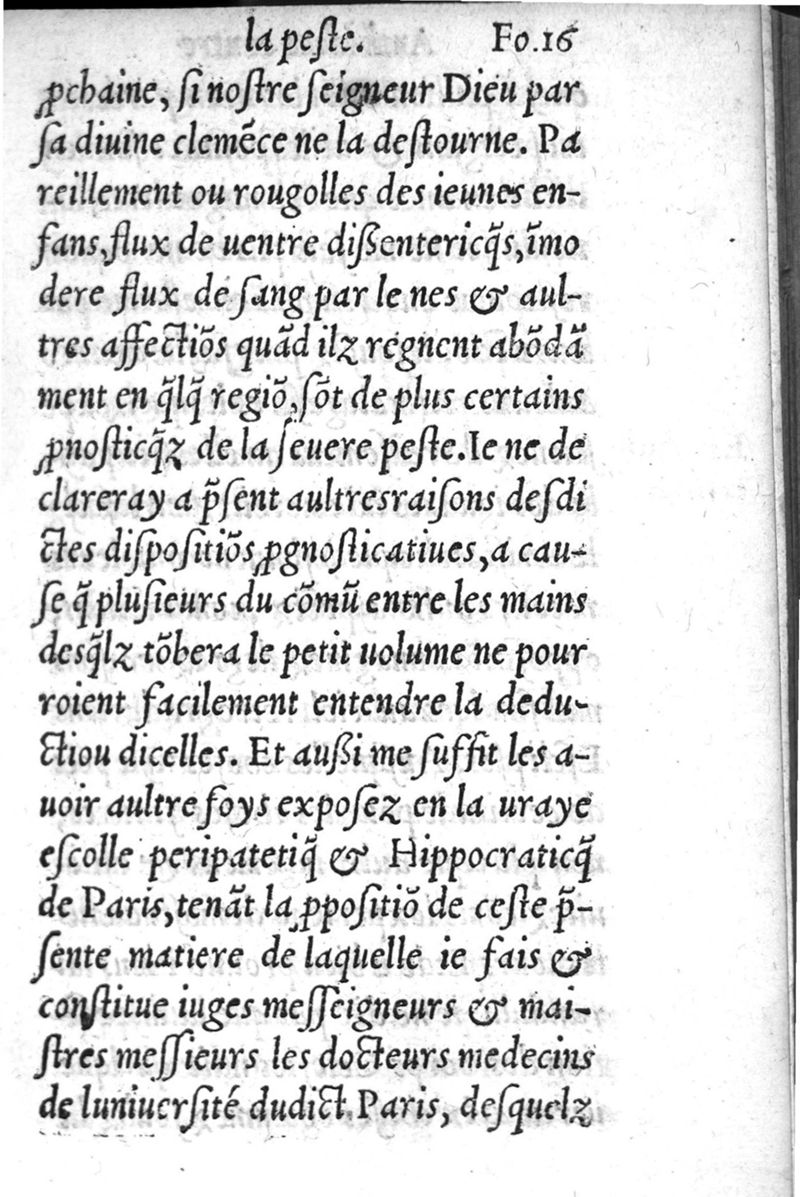 la peſte. Fo.16
ꝓchaine, ſi noſtre ſeigneur Dieu par
ſa diuine clemẽce ne la deſtourne. Pa
reillement ou rougolles des ieunes en-
fans, flux de uentre diſſentericq̃s, ĩmo
dere flux de ſang par le nes & aul-
tres affectiõs quãd ilz regnent abõdã
ment en q̃lq̃ regiõ, ſõt de plus certains
ꝓnoſticq̃z de la ſeuere peſte. Ie ne de
clareray a p̃ſent aultresraiſons deſdi
ctes diſpoſitiõs ꝓgnoſticatiues, a cau-
ſe q̃ pluſieurs du cõmũ entre les mains
deſq̃lz tõbera le petit uolume ne pour
roient facilement entendre la dedu-
ctiou dicelles. Et auſſi me ſuffit les a-
uoir aultre foys expoſez en la uraye
eſcolle peripatetiq̃ & Hippocraticq̃
de Paris, tenãt la ꝓpoſitiõ de ceſte p̃-
ſente matiere de laquelle ie fais &
conſtitue iuges meſſeigneurs & mai-
ſtres meſſieurs les docteurs medecins
de luniuerſité dudict Paris, deſquelz